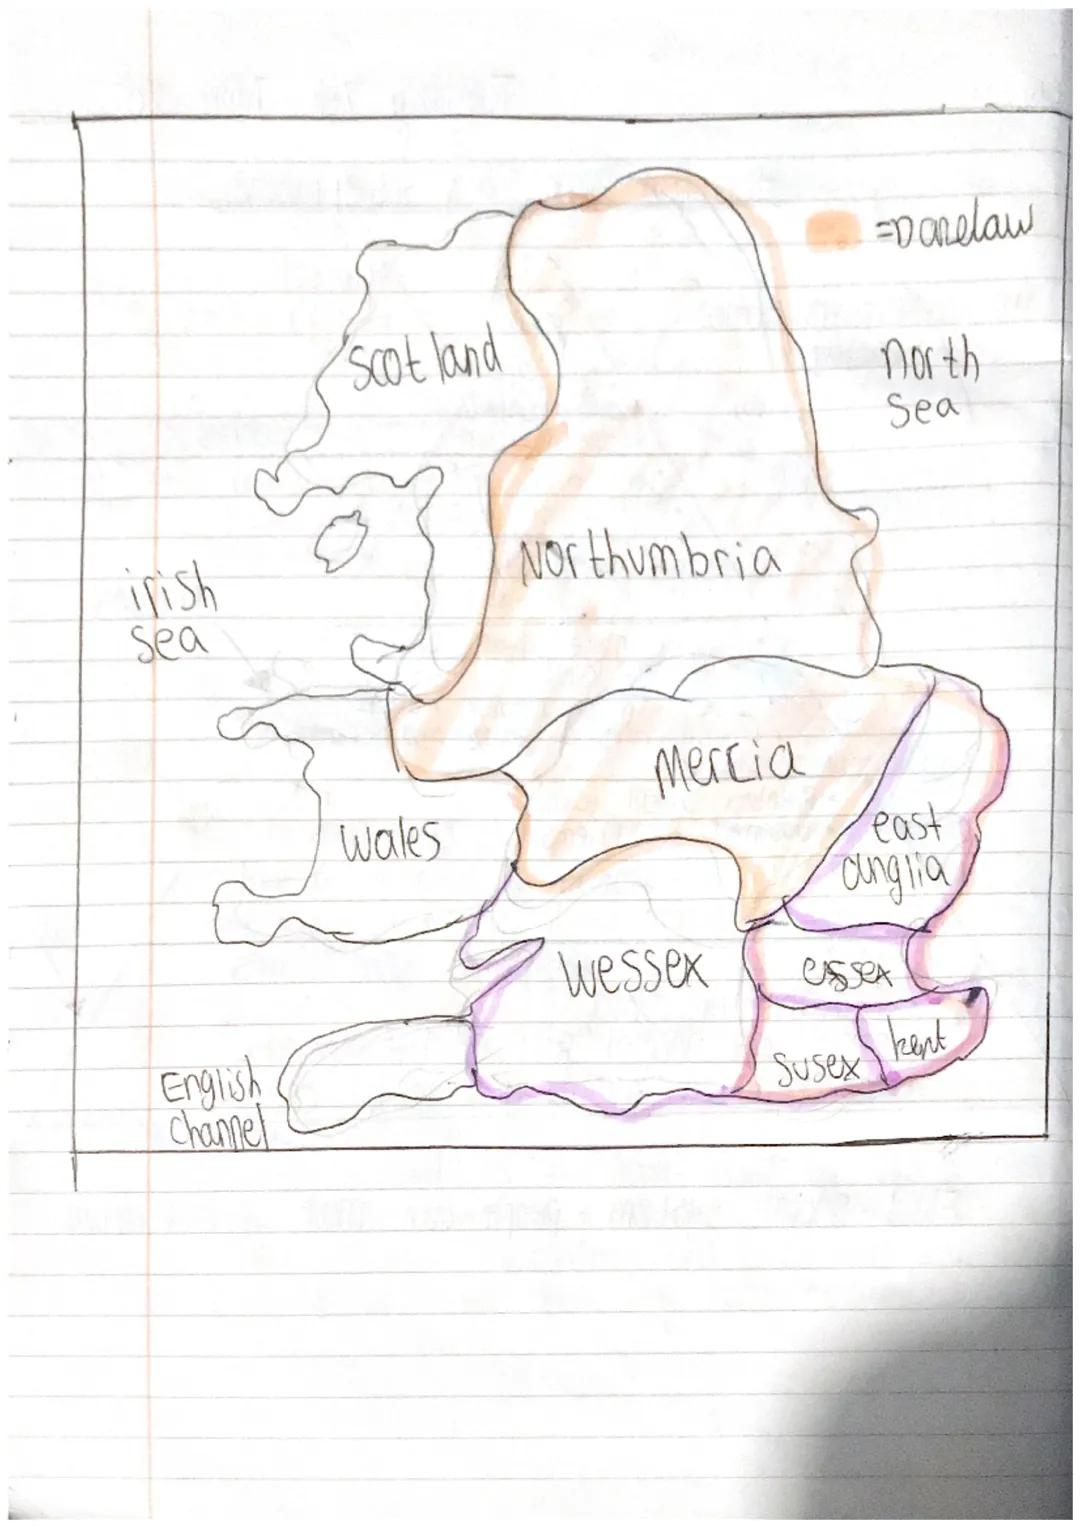 =Danelaw
scotland
north
sea
Northumbria
irish
sea
mercia
wales
east
anglia
wessex
essex
susex
kent
English
channel